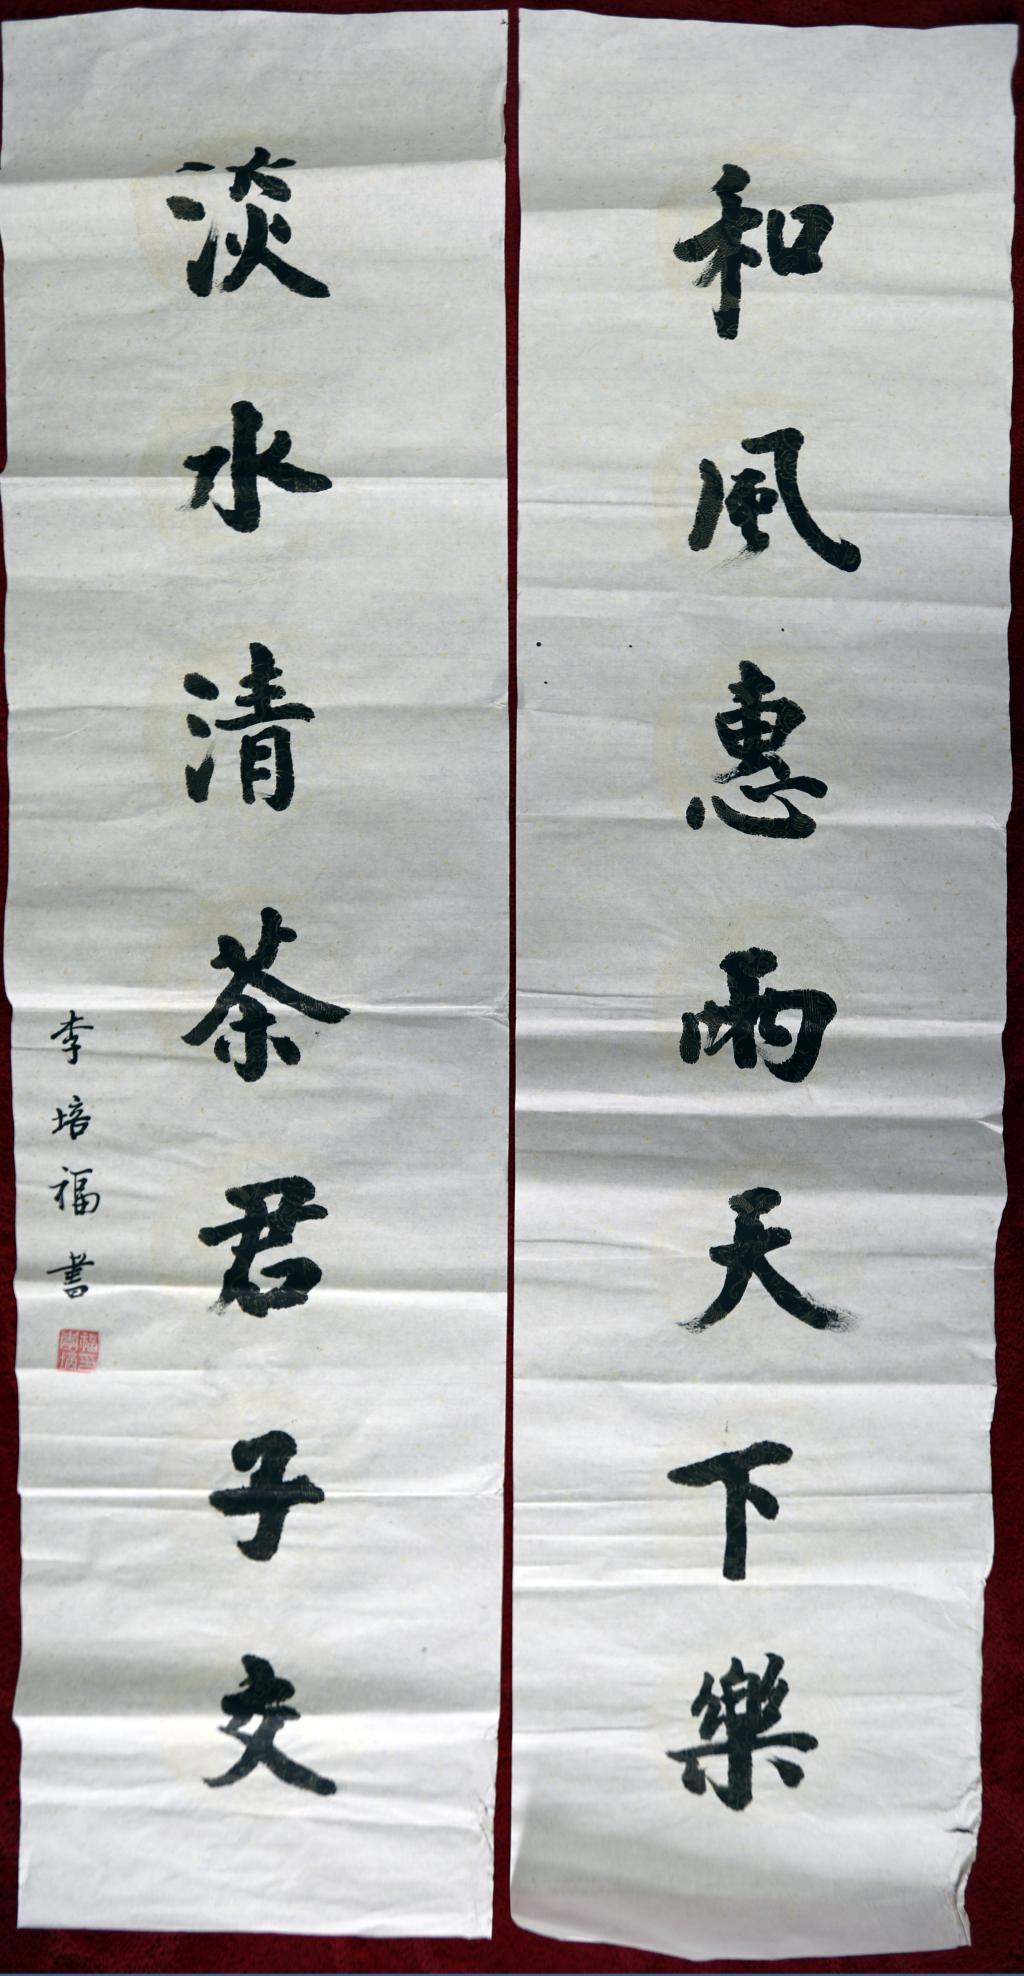 和風惠雨天下樂
淡水清茶君子交
李培福書